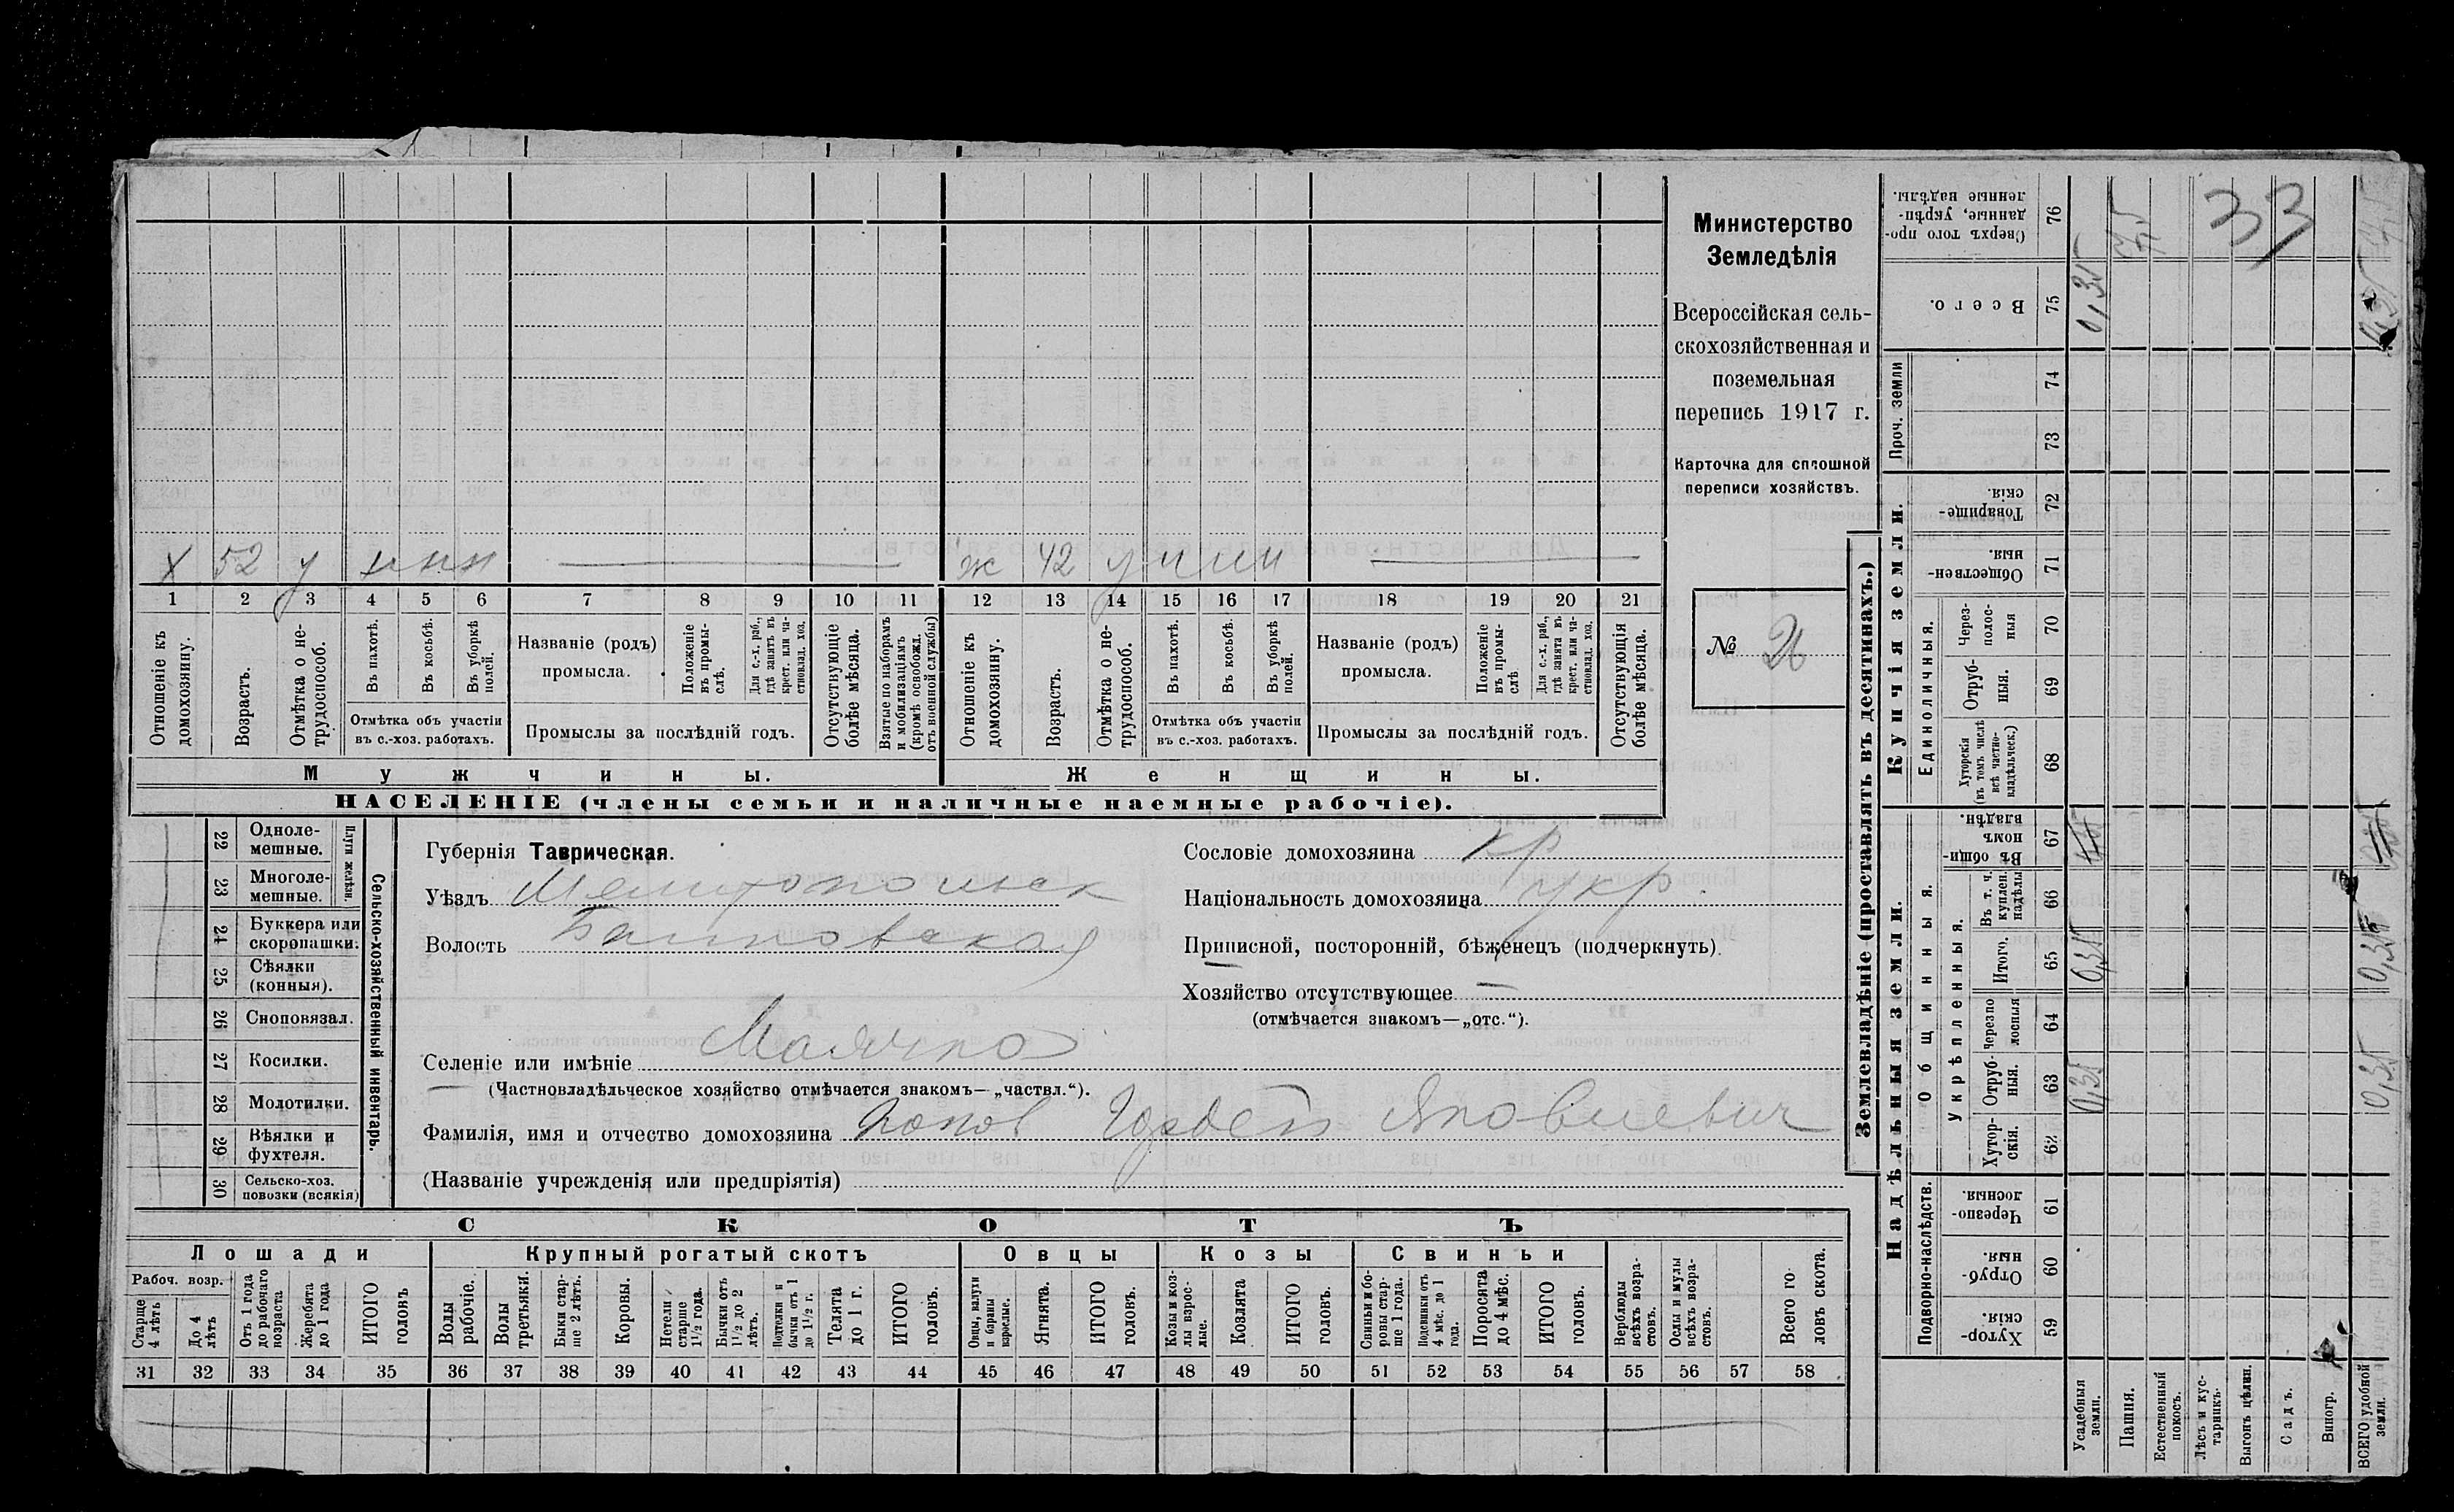 Министерство
Земледѣлія
Всероссійская сель-
скохозяйственная и
поземельная
перепись 1917 г.
Карточка для сплошной
переписи хозяйствъ.
№ 26
х 52 у н н н — ж 42 у н н н —
1 2 3 4 5 6 7 8 9 10 11 12 13 14 15 16 17 18 19 20 21
Отношеніе къ домохозяину.
Возрастъ.
Отмѣтка о не-трудоспособ.
Въ пахотѣ.
Въ косьбѣ.
Въ уборкѣ полей.
Отмѣтка объ участіи
въ с.-хоз. работахъ.
Названіе (родъ)
промысла.
Положеніе въ промы-слѣ.
Для с.-х. раб., гдѣ занятъ въ крест. или ча-стновлад. хоз.
Промыслы за послѣдній годъ.
Отсутствующіе болѣе мѣсяца.
Взятые по наборамъ и мобилизаціямъ (кромѣ освобожд. отъ военной службы)
Отношеніе къ домохозяину.
Возрастъ.
Отмѣтка о не-трудоспособ.
Въ пахотѣ.
Въ косьбѣ.
Въ уборкѣ полей.
Отмѣтка объ участіи
въ с.-хоз. работахъ.
Названіе (родъ)
промысла.
Положеніе въ промы-слѣ
Для с.-х. раб., гдѣ занята въ крест. или ча-стновлад. хоз.
Промыслы за послѣдній годъ.
Отсутствующія болѣе мѣсяца.
Мужчины. Женщины.
НАСЕЛЕНІЕ (члены семьи и наличные наемные рабочіе).
22 Одноле-мешные.
23 Многоле-мешные.
Плуги желѣзн.
24 Буккера или скоропашки.
25 Сѣялки (конныя).
26 Сноповязал.
27 Косилки.
28 Молотилки.
29 Вѣялки и фухтеля.
30 Сельско-хоз. повозки (всякія)
Сельско-хозяйственный инвентарь.
Губернія Таврическая.
Уѣздъ Мелитопольск
Волость
Селеніе или имѣніе Маячка
(Частновладѣльческое хозяйство отмѣчается знакомъ—„частвл.“).
Фамилія, имя и отчество домохозяина Попов Гордей Яковлевич
(Названіе учрежденія или предпріятія)
Сословіе домохозяина кр
Національность домохозяина укр.
Приписной, посторонній, бѣженецъ (подчеркнуть).
Хозяйство отсутствующее —
(отмѣчается знакомъ—„отс.“).
СКОТЪ
Лошади Крупный рогатый скотъ Овцы Козы Свиньи
Рабоч. возр.
Старше 4 лѣтъ
До 4 лѣтъ
Отъ 1 года до рабочаго возраста
Жеребята до 1 года
ИТОГО головъ
Волы рабочіе.
Волы третьяки.
Быки стар-ше 2 лѣтъ.
Коровы.
Нетели старше 1½ года.
Бычки отъ 1½ до 2 лѣтъ.
Подтелки и бычки отъ 1 до 1½ г.
Телята до 1 г.
ИТОГО головъ.
Овцы, валухи и бараны взрослые.
Ягнята.
ИТОГО головъ.
Козы и коз-лы взрос-лые.
Козлята
ИТОГО головъ.
Свиньи и бо-ровы стар-ше 1 года.
Подсвинки отъ 4 мѣс. до 1 года.
Поросята до 4 мѣс.
ИТОГО головъ.
Верблюды всѣхъ возра-стовъ.
Ослы и мулы всѣхъ возра-стовъ.
Всего го-ловъ скота.
31 32 33 34 35 36 37 38 39 40 41 42 43 44 45 46 47 48 49 50 51 52 53 54 55 56 57 58
Землевладѣніе (проставлять въ десятинахъ.)
Купчія земли.
Надѣльныя земли.
Сверхъ того про-данные, укрѣп-ленные надѣлы. 76
33
Всего. 75 0,35
Проч. земли 74 73
Товарище-скія. 72
Обществен-ныя. 71
Единоличныя.
Через-полос-ныя 70
Отруб-ныя. 69
Хуторскія (въ томъ числѣ всѣ частно-владѣльческ.) 68
Общинныя.
Въ общи-номъ владѣн. 67
Укрѣпленныя.
Въ т. ч. куплен. надѣлы 66
Итого. 65 0,35 0,35
Черезпо лосныя 64
Отруб-ныя. 63 0,35 0,35
Хутор-скія. 62
Подворно-наслѣдств.
Черезпо-лосныя. 61
Отруб-ныя. 60
Хутор-скія. 59
Усадебныя земли.
Пашня.
Естественный покосъ.
Лѣсъ и кус-тарникъ.
Выгонъ цѣлин.
Садъ.
Виногр.
ВСЕГО удобной земли.